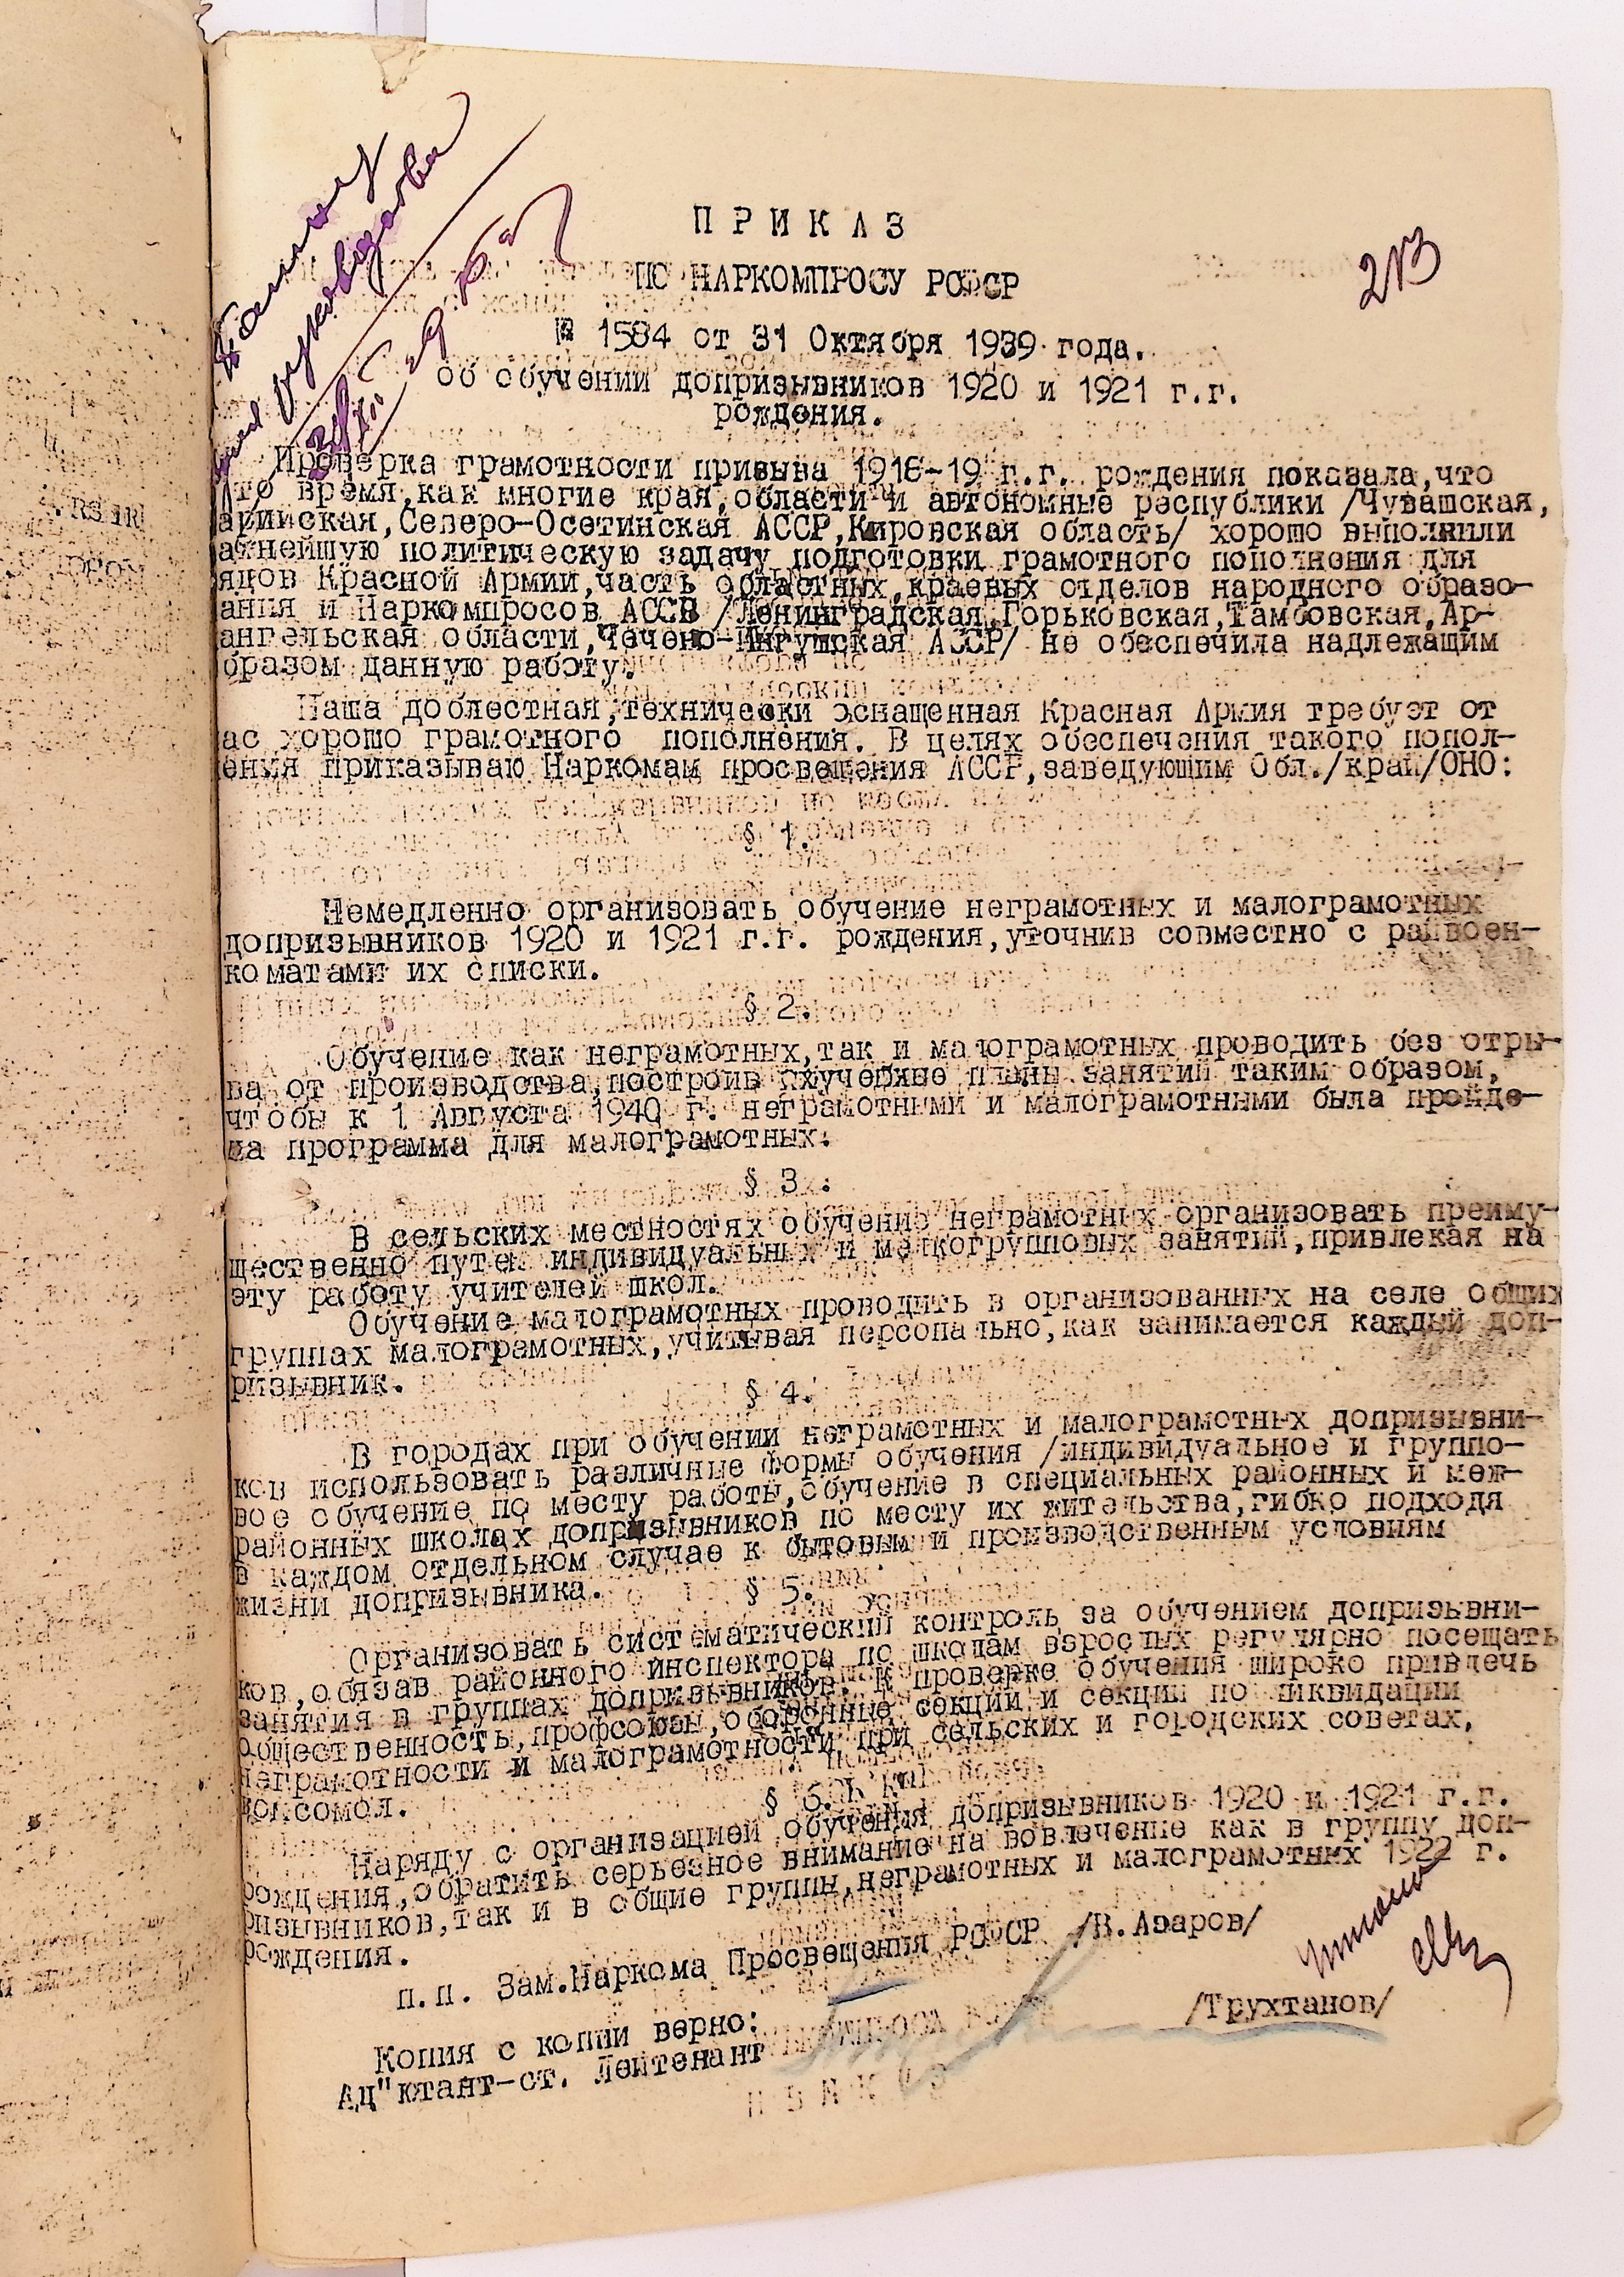 213
П Р И К А З
ПО НАРКОМПРОСУ РСФСР
№ 1584 от 31 Октября 1939 года.
Об обучении допризывников 1920 и 1921 г.г.
рождения.
Проверка грамотности призыва 1918-19 г.г. рождения показала,что
то время,как многие края,области и автономные республики /Чувашская,
арийская,Северо-Осетинская АССР,Кировская область/ хорошо выполнили
ажнейшую политическую задачу подготовки грамотного пополнения для
ядов Красной Армии,часть областных,краевых отделов народного образо-
ания и Наркомпросов АССР /Ленинградская,Горьковская,Тамбовская,Ар-
ангельская области,Чечено-Ингушская АССР/ не обеспечила надлежащим
бразом данную работу.
Наша доблестная,технически оснащенная Красная Армия требует от
ас хорошо грамотного пополнения. В целях обеспечения такого попол-
ения приказываю Наркомам просвещения АССР,заведующим Обл./край/ОНО:
§ 1.
Немедленно организовать обучение неграмотных и малограмотных
допризывников 1920 и 1921 г.г. рождения,уточнив совместно с райвоен-
коматами их списки.
§ 2.
Обучение как неграмотных,так и малограмотных проводить без отры-
ва от производства,построив учебные планы занятий таким образом,
чтобы к 1 Августа 1940 г. неграмотными и малограмотными была пройде-
на программа для малограмотных.
§ 3.
В сельских местностях обучение неграмотных организовать преиму-
щественно путем индивидуальных и мелкогрупповых занятий,привлекая на
эту работу учителей школ.
Обучение малограмотных проводить в организованных на селе общих
группах малограмотных,учитывая персонально,как занимается каждый доп-
ризывник.
§ 4.
В городах при обучении неграмотных и малограмотных допризывни-
ков использовать различные формы обучения /индивидуальное и группо-
вое обучение по месту работы,обучение в специальных районных и меж-
районных школах допризывников по месту их жительства,гибко подходя
в каждом отдельном случае к бытовым и производственным условиям
жизни допризывника.
§ 5.
Организовать систематический контроль за обучением допризывни-
ков,обязав районного инспектора по школам взрослых регулярно посещать
занятия в группах допризывников. К проверке обучения широко привлечь
общественность,профсоюзы,оборонные секции и секции по ликвидации
неграмотности и малограмотности при сельских и городских советах,
комсомол.
§ 6.
Наряду с организацией обучения допризывников 1920 и 1921 г.г.
рождения,обратить серьезное внимание на вовлечение как в группу доп-
ризывников,так и в общие группы,неграмотных и малограмотных 1922 г.
рождения.
п.п. Зам.Наркома Просвещения РСФСР /В.Азаров/
Копия с копии верно:
Ад"ютант-ст. Лейтенант /Трухтанов/